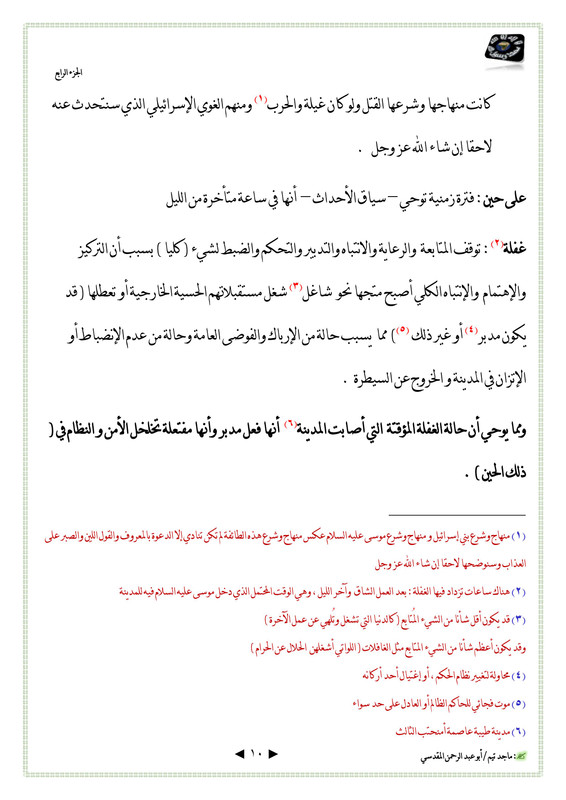 الجزء الرابع
كانت منهاجها وشرعها القتل ولو كان غيلة والحرب(١) ومنهم الغوي الإسرائيلي الذي سنتحدث عنه
لاحقا إن شاء الله عز وجل .
على حين : فترة زمنية توحي – سياق الأحداث – أنها في ساعة متأخرة من الليل
غفلة(٢) : توقف المتابعة والرعاية والانتباه والتدبير والتحكم والضبط لشيء ( كليا ) بسبب أن التركيز
والإهتمام والإنتباه الكلي أصبح متجها نحو شاغل(٣) شغل مستقبلاتهم الحسية الخارجية أو تعطلها ( قد
يكون مدبر(٤) أو غير ذلك(٥)) مما يسبب حالة من الإرباك والفوضى العامة وحالة من عدم الإنضباط أو
الإتزان في المدينة والخروج عن السيطرة .
ومما يوحي أن حالة الغفلة المؤقتة التي أصابت المدينة(٦) أنها فعل مدبر وأنها مفتعلة تخلخل الأمن والنظام في (
ذلك الحين ) .
(١) منهاج وشرع بني إسرائيل ومنهاج وشرع موسى عليه السلام عكس منهاج وشرع هذه الطائفة لم تكن تنادي إلا الدعوة بالمعروف والقول اللين والصبر على
العذاب وسنوضحها لاحقا إن شاء الله عز وجل
(٢) هناك ساعات تزداد فيها الغفلة : بعد العمل الشاق وآخر الليل ، وهي الوقت المحتمل الذي دخل موسى عليه السلام فيه للمدينة
(٣) قد يكون أقل شأنا من الشيء المُتابع (كالدنيا التي تشغل وتُلهي عن عمل الآخرة )
وقد يكون أعظم شأنا من الشيء المتابع مثل الغافلات ( اللواتي أشغلهن الحلال عن الحرام )
(٤) محاولة لتغيير نظام الحكم ، أو إغتيال أحد أركانه
(٥) موت فجائي للحاكم الظالم أو العادل على حد سواء
(٦) مدينة طيبة عاصمة أمنحتب الثالث
: ماجد تيم / أبو عبد الرحمن المقدسي
◄ ١٠ ►